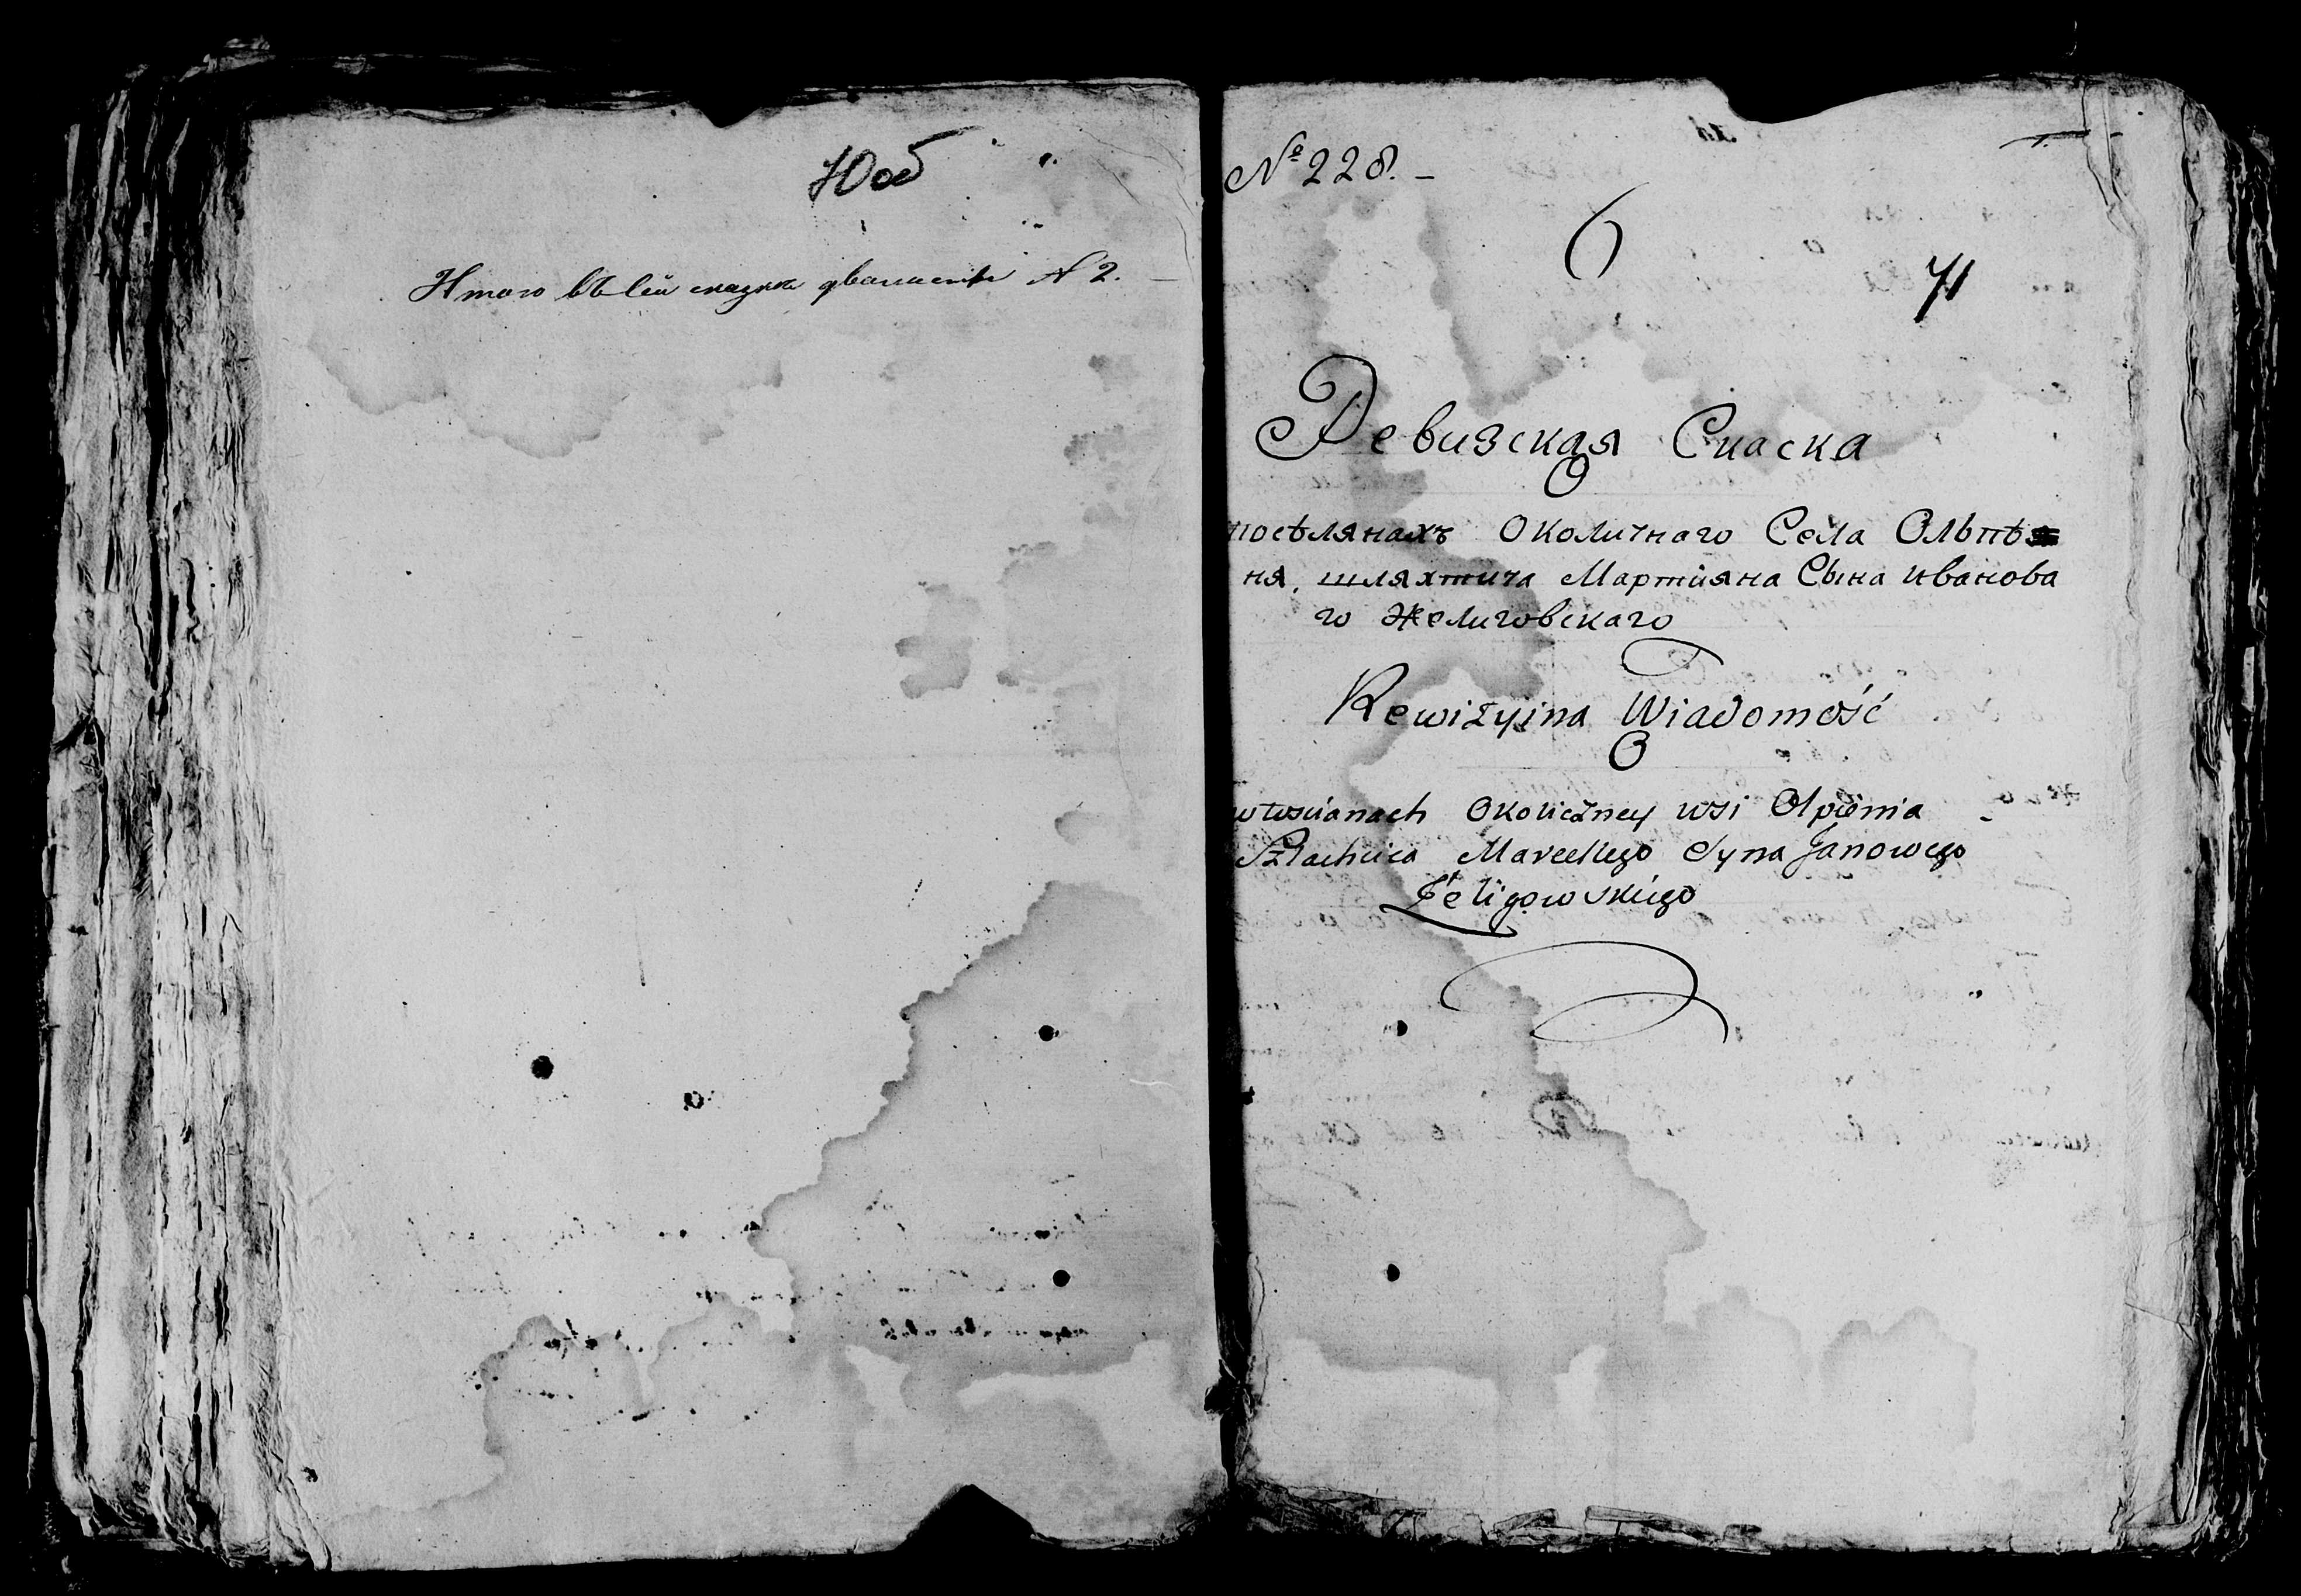 70об
Итого въ сей сказке два листа № 2.
№ 228. –
6
71
Ревизская Скаска
О
посѣлянахъ Околичнаго Села Ольпѣ
ня, шляхтича Мартияна Сына Иванова
го Желиговскаго
Rewizyina Wiadomość
O
włościanach Okoliczney wsi Olpienia
Szlachcica Marcellego Syna Janowego
Żeligowskiego